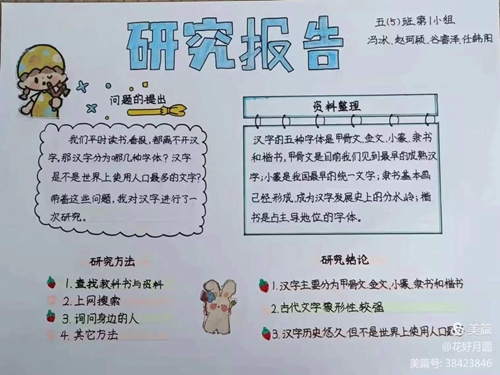 研究报告
五(5)班.第1小组
冯冰、赵珂颖、谷睿泽、任韩阳
问题的提出
我们平时读书,看报,都离不开汉
字,那汉字分为哪几种字体?汉字
是不是世界上使用人口最多的文字?
带着这些问题,我对汉字进行了一
次研究。
资料整理
汉字的五种字体是甲骨文、金文、小篆、隶书
和楷书,甲骨文是目前我们见到最早的成熟汉
字;小篆是我国最早的统一文字;隶书基本画
已经形成,成为汉字发展史上的分水岭;楷
书是占主导地位的字体。
研究方法
1.查找教科书与资料
2.上网搜索
3.询问身边的人
4.其它方法
研究结论
1.汉字主要分为甲骨文、金文、小篆、隶书和楷书
2.古代文字象形性较强
3.汉字历史悠久,但不是世界上使用人口最
美篇
@花好月圆
美篇号: 38423846